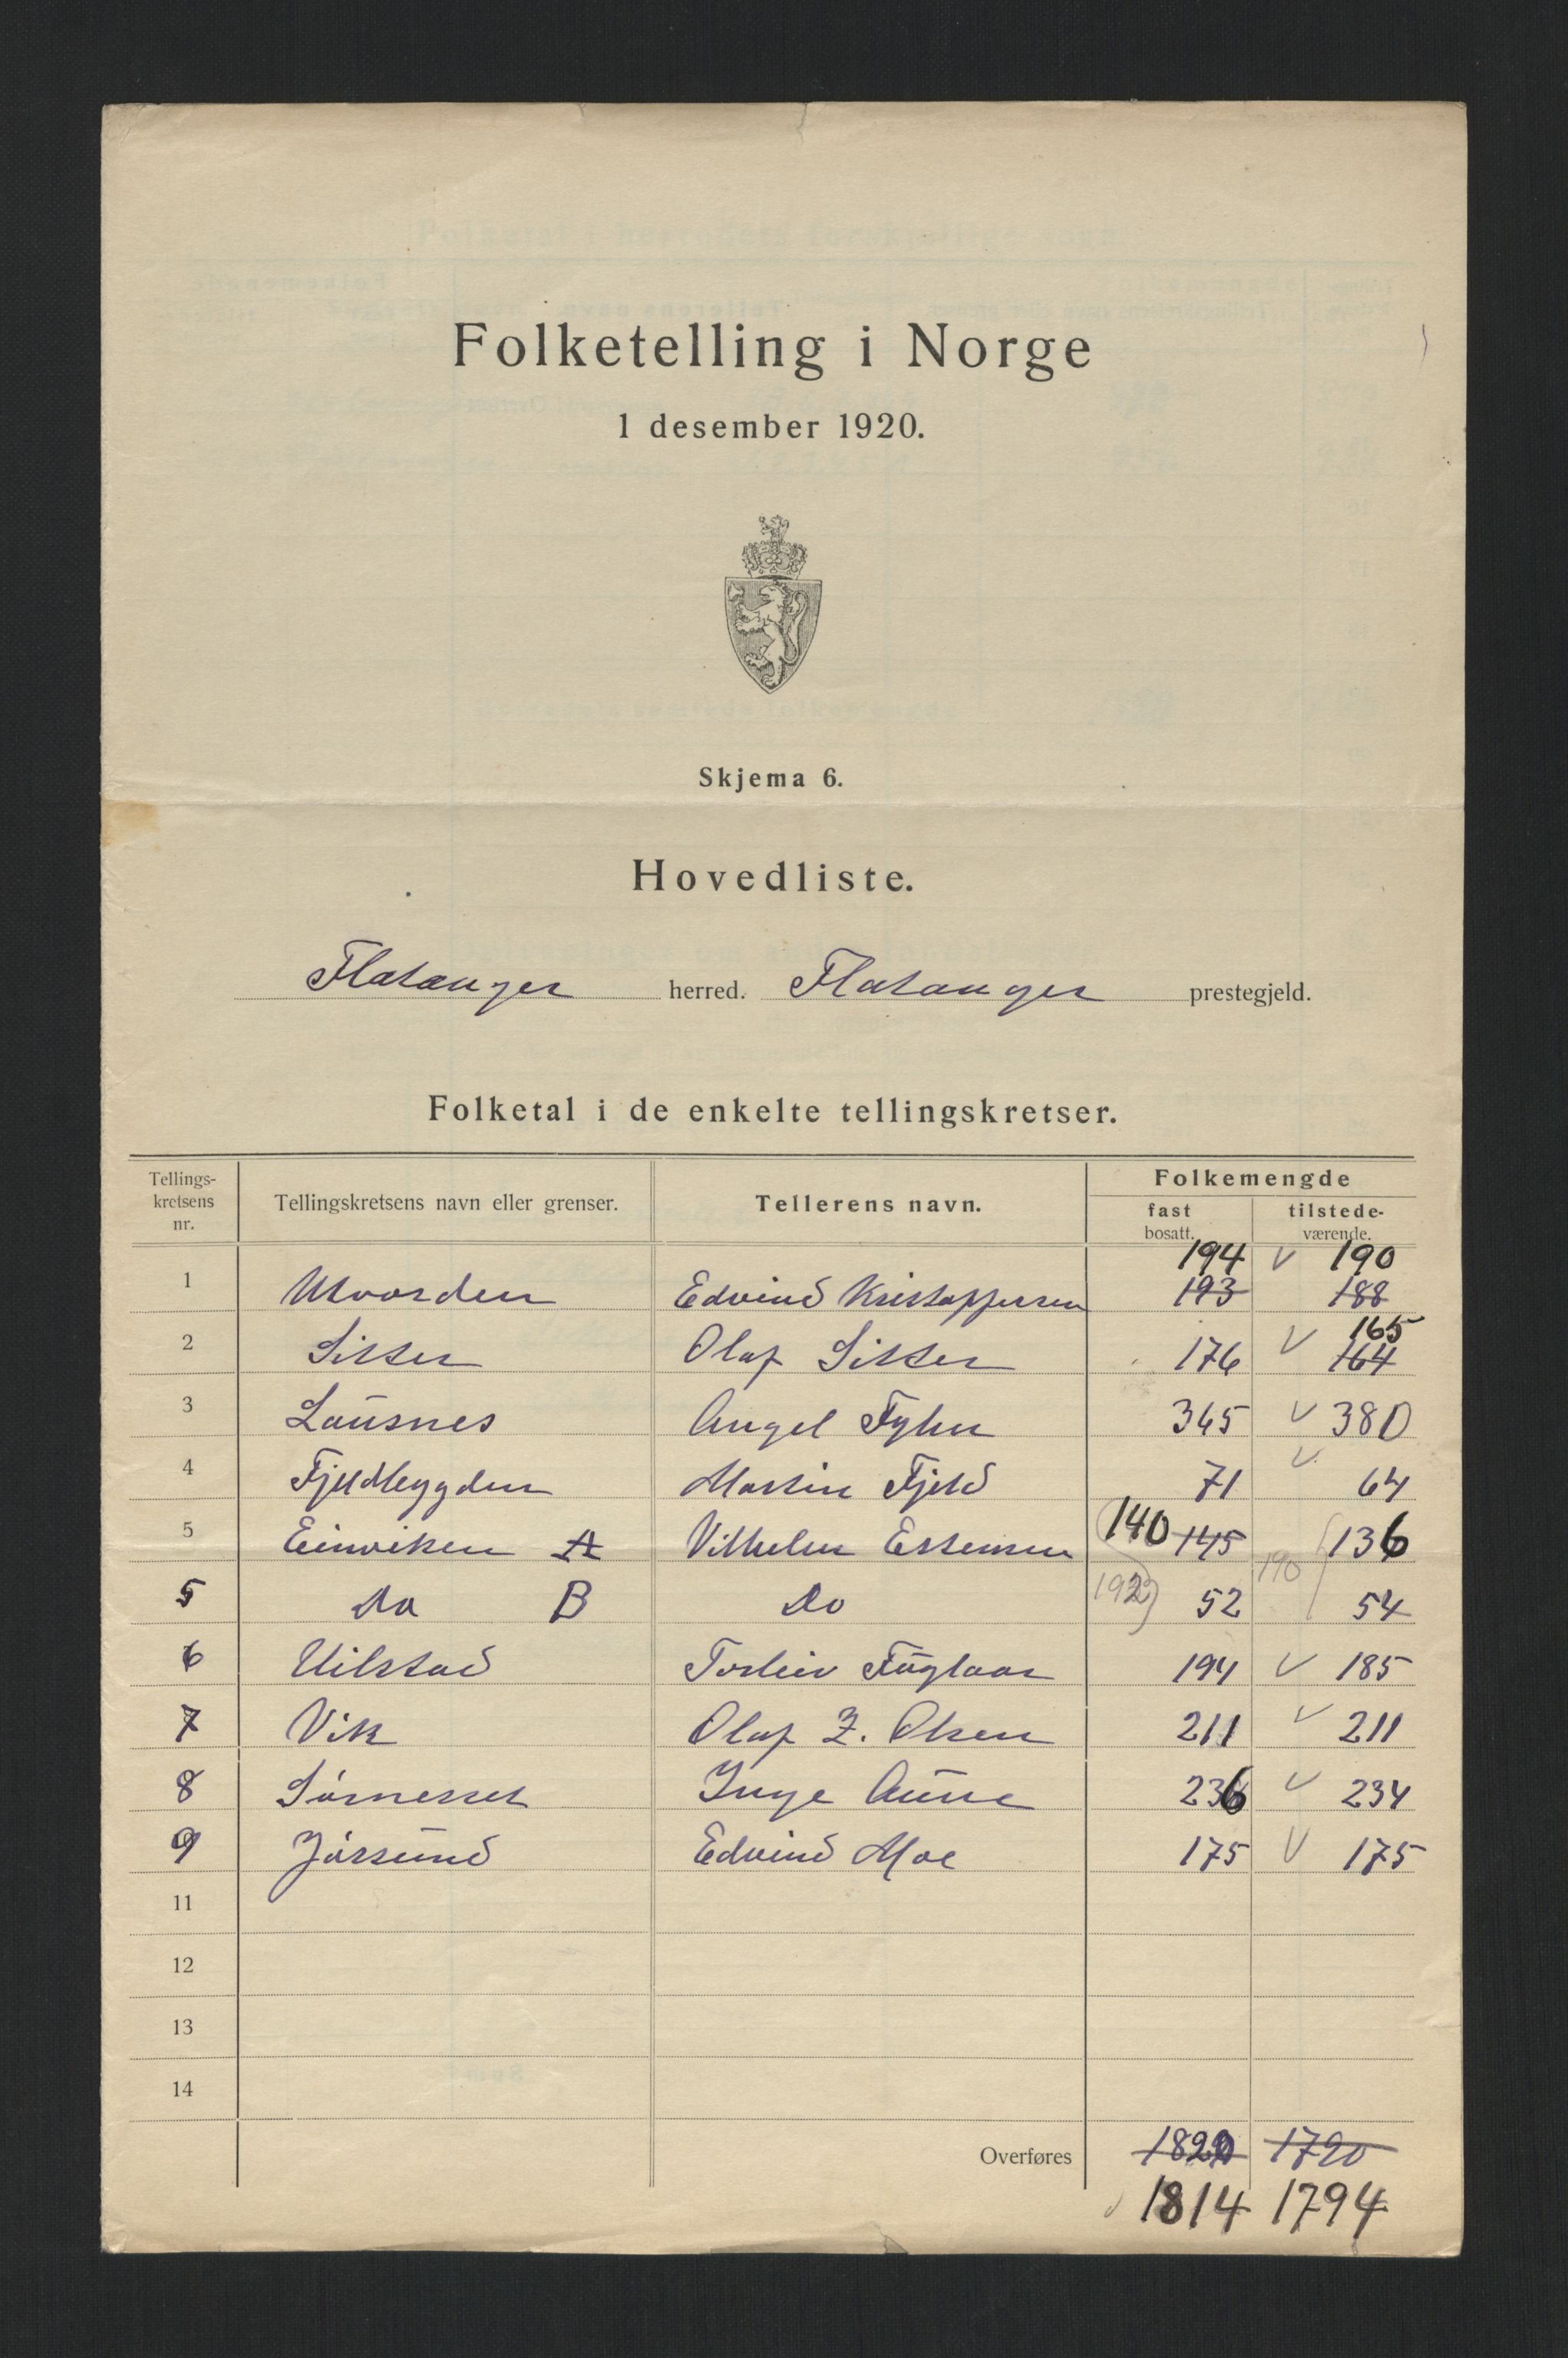 Folketelling i Norge
1 desember 1920.
Skjema 6.
Hovedliste.
Flatanger herred. Flatanger prestegjeld.
Folketal i de enkelte tellingskretser.
Tellings-kretsens nr. Tellingskretsens navn eller grenser. Tellerens navn. Folkemengde
fast bosatt. tilstede-værende.
194 v 190
1 Utvorden Edvind Kristoffersen 193 188
165
2 Sitter Olaf Sitter 176 v 164
3 Lausnes Angel Fyhn 365 v 380
4 Fjeldbygden Martin Fjeld 71 v 64
5 Einviken A Vilhelm Estensen 140 145 136
5 Do B Do 192 52 190 54
6 Utlstad Torleiv Fuglaar 194 v 185
7 Vik Olaf Z. Olsen 211 v 211
8 Sørnesset Inge Aune 236 v 234
9 Jøssund Edvind Moe 175 v 175
11
12
13
14
Overføres 1820 1790
1814 1794